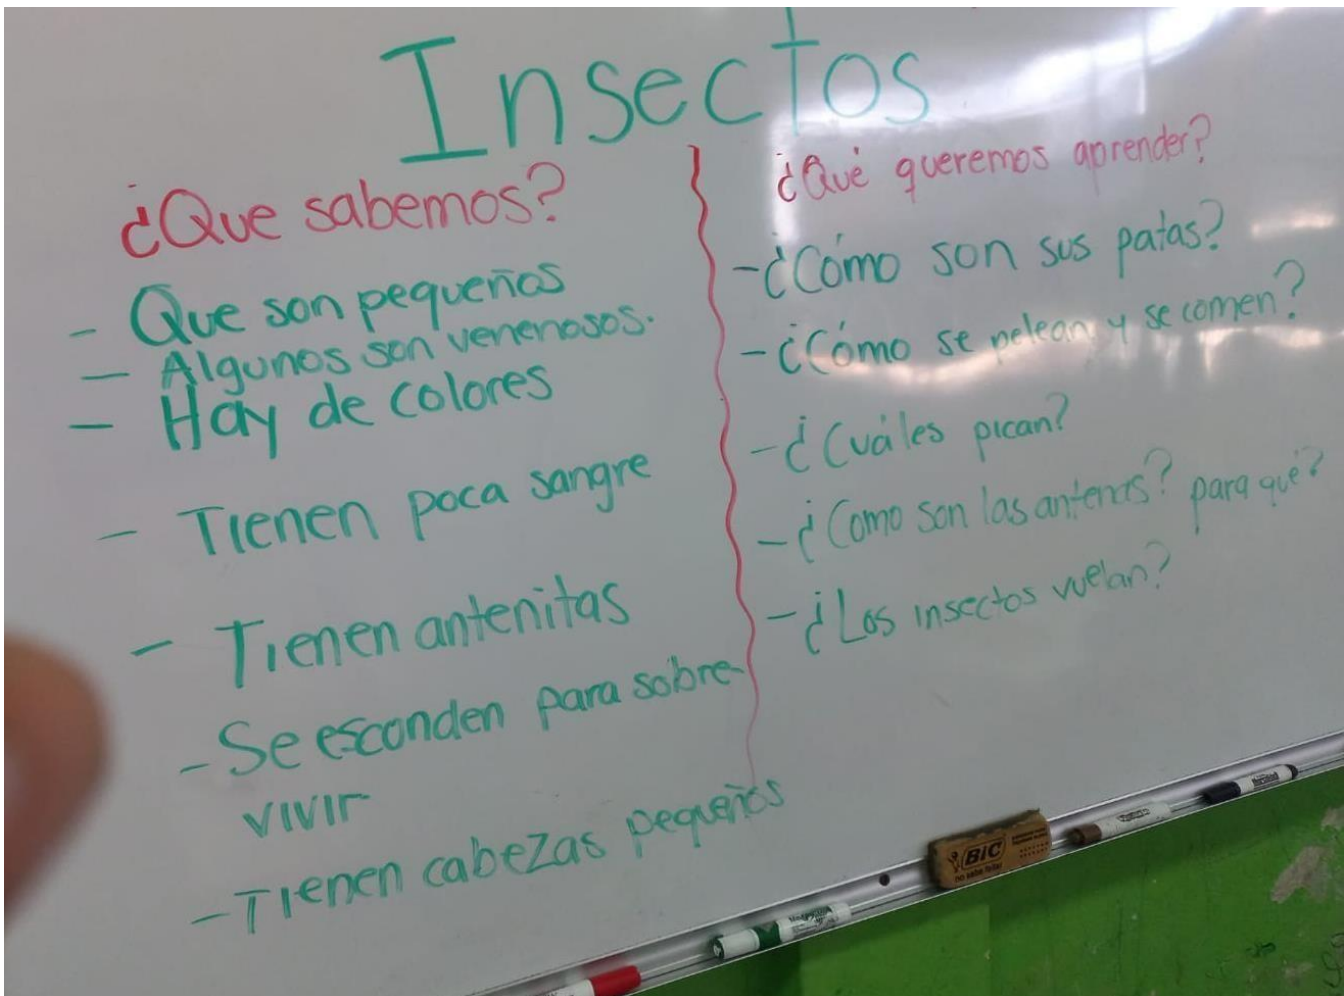 Insectos
¿Que sabemos?
- Que son pequeños
- Algunos son venenosos.
- Hay de colores
- Tienen poca sangre
- Tienen antenitas
- Se esconden para sobre-
vivir
- Tienen cabezas pequeños
¿Qué queremos aprender?
- ¿Cómo son sus patas?
- ¿Cómo se pelean y se comen?
- ¿Cuáles pican?
- ¿Como son las antenas? para qué?
- ¿Los insectos vuelan?
BIC
no sabe fallar